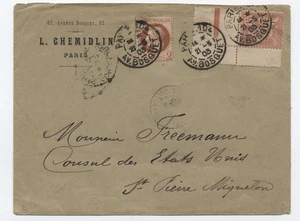 67, AVENUE BOSQUET, 67
L. CHEMIDLIN
PARIS
AV. BOSQUET
AV. BOSQUET
Monsieur Freemann
Consul des Etats Unis
St Pierre Miquelon